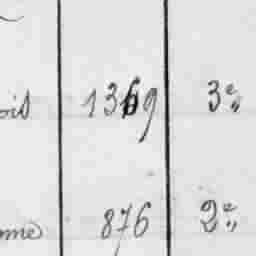 ois 1369 3e
nne 876 2e